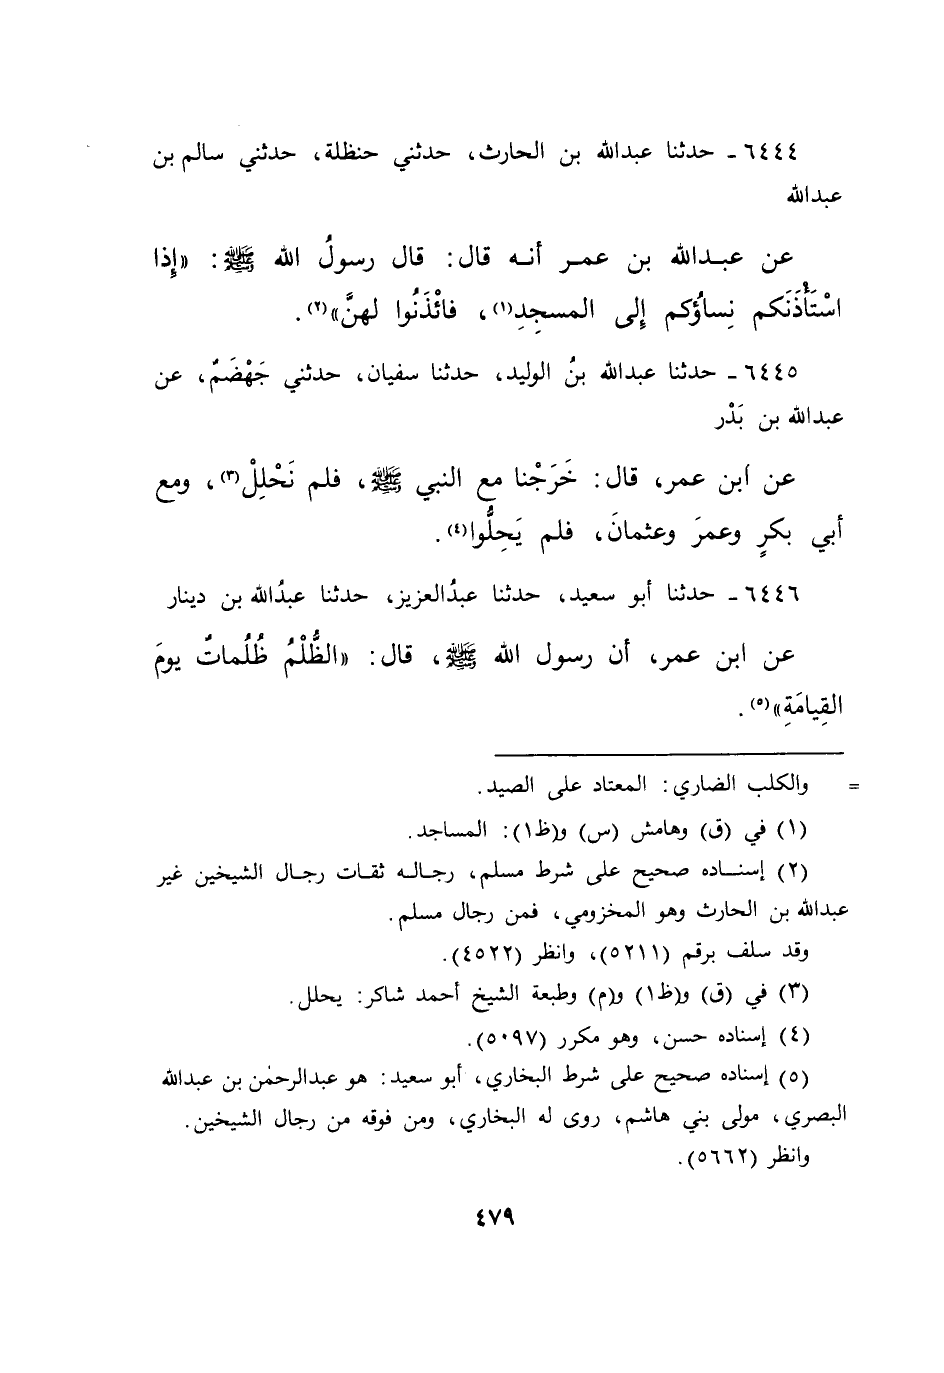 ٦٤٤٤ - حدثنا عبدالله بن الحارث، حدثني حنظلة، حدثني سالم بن
عبدالله
عن عبدالله بن عمر أنه قال: قال رسولُ الله ﷺ: «إِذا
اسْتَأْذَنَكم نِساؤُكم إِلى المسجِدِ(١)، فائْذَنُوا لهنَّ»(٢).
٦٤٤٥ - حدثنا عبدالله بنُ الوليد، حدثنا سفيان، حدثني جَهْضَمٌ، عن
عبدالله بن بَدْر
عن ابن عمر، قال: خَرَجْنا مع النبي ﷺ، فلم نَحْلِلْ(٣)، ومع
أبي بكرٍ وعمرَ وعثمانَ، فلم يَحِلُّوا(٤).
٦٤٤٦ - حدثنا أبو سعيد، حدثنا عبدُالعزيز، حدثنا عبدُالله بن دينار
عن ابن عمر، أن رسول الله ﷺ، قال: «الظُّلْمُ ظُلُماتٌ يومَ
القِيامَةِ»(٥).
= والكلب الضاري: المعتاد على الصيد.
(١) في (ق) وهامش (س) و(ظ١): المساجد.
(٢) إسناده صحيح على شرط مسلم، رجاله ثقات رجال الشيخين غير
عبدالله بن الحارث وهو المخزومي، فمن رجال مسلم.
وقد سلف برقم (٥٢١١)، وانظر (٤٥٢٢).
(٣) في (ق) و(ظ١) و(م) وطبعة الشيخ أحمد شاكر: يحلل.
(٤) إسناده حسن، وهو مكرر (٥٠٩٧).
(٥) إسناده صحيح على شرط البخاري، أبو سعيد: هو عبدالرحمٰن بن عبدالله
البصري، مولى بني هاشم، روى له البخاري، ومن فوقه من رجال الشيخين.
وانظر (٥٦٦٢).
٤٧٩